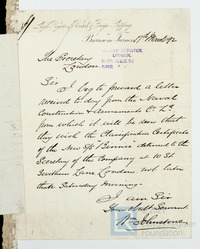 Lloyd's Register of British & Foreign Shipping
Barrow in Furness 17th March 1892
The Secretary
London
Sir
I beg to forward a letter
received to day from the Naval
Construction & Armaments Co Ld
from which it will be seen that
they wish the Classification Certificate
of the New S/S returned to the
Secretary of the Company at 10 St
Swithins Lane London not later
than Saturday Morning.
I am Sir
Your Obedt Servant
Wm Johnstone